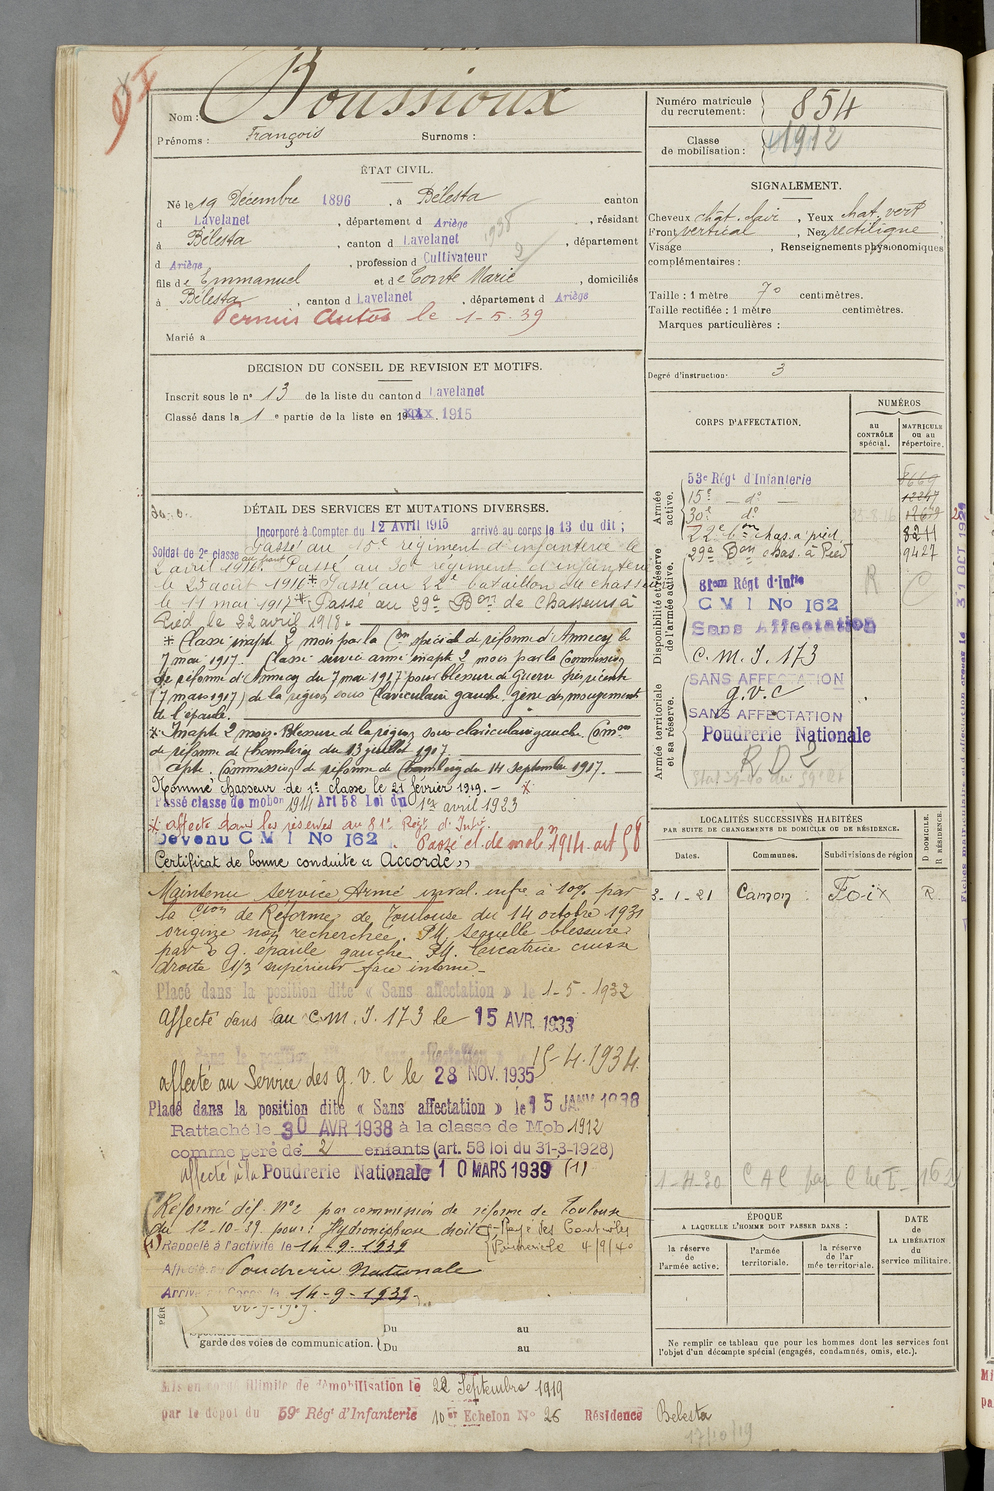 Nom : Boussioux
Prénoms : François Surnoms :
Numéro matricule du recrutement : 854
Classe de mobilisation : 1912
ÉTAT CIVIL.
Né le 19 Décembre 1896, à Bélesta canton
d Lavelanet, département d Ariège, résidant
à Bélesta, canton d Lavelanet, département
d Ariège, profession d Cultivateur
fils de Emmanuel et de Conte Marie, domiciliés
à Bélesta, canton d Lavelanet, département d Ariège
Permis Autos le 1-5-39
Marié à
SIGNALEMENT.
Cheveux chât. clair, Yeux chat. vert,
Front vertical, Nez rectiligne,
Visage , Renseignements physionomiques
complémentaires :
Taille : 1 mètre 70 centimètres.
Taille rectifiée : 1 mètre centimètres.
Marques particulières :
Degré d'instruction. 3
DECISION DU CONSEIL DE REVISION ET MOTIFS.
Inscrit sous le n° 13 de la liste du canton d Lavelanet
Classé dans la 1e partie de la liste en 19 1915
DÉTAIL DES SERVICES ET MUTATIONS DIVERSES.
Incorporé à Compter du 12 Avril 1915 arrivé au corps le 13 du dit ;
Soldat de 2e classe Passé au 15e régiment d'infanterie le
2 avril 1916. Passé au 30e régiment d'infanterie
le 25 août 1916 * Passé au 22e bataillon de chasseurs
le 11 mai 1917 * Passé au 29e Bon de Chasseurs à
Pied, le 22 avril 1918.
* Classé inapte 2 mois par la Con spéciale de réforme d'Annecy le
7 mai 1917. Classé service armé inapte 2 mois par la Commission
de réforme d'Annecy du 7 mai 1917 pour blessure de Guerre très récente
(7 mars 1917) de la région sous claviculaire gauche. Gêne des mouvements
de l'épaule.
* Inapte 2 mois. Blessure de la région sous claviculaire gauche. Comon
de réforme de Chambéry du 13 juillet 1917.
Apte. Commission de réforme de Chambéry du 14 Septembre 1917.
Nommé chasseur de 1e classe le 21 février 1919. - *
Passé classe de mobon 1914 Art 58 Loi du 1er avril 1923
* affecté dans les réserves au 81e Régt d'Infie.
Devenu C M I No 162 Passé cl. de mobon 1914 art 58
Certificat de bonne conduite « Accordé »
Maintenu Service Armé inval. infre à 10% par
la Cion de Réforme de Toulouse du 14 octobre 1931
origine non recherchée. Séquelle blessure
épaule gauche. Cicatrice cuisse
droite 1/3 supérieur face interne -
Placé dans la position dite « Sans affectation » le 1-5-1932
Affecté dans au C.M.I. 173 le 15 AVR. 1933
dans la position « Sans affectation » le 15-4-1934
affecté au Service des g.v.c le 28 NOV. 1935
Placé dans la position dite « Sans affectation » le 15 JANV 1938
Rattaché le 30 AVR 1938 à la classe de Mob 1912
comme père de 2 enfants (art. 58 loi du 31-3-1928)
affecté à la Poudrerie Nationale 10 MARS 1939 (1)
Réformé déf. N°2 par commission de réforme de Toulouse
du 12-10-39 pour : Hydronéphrose droite
Poudrerie 4/9/40
(1) Rappelé à l'activité le 14-9-1939
Affecté à Poudrerie Nationale
Arrivé au Corps le 14-9-1939
garde des voies de communication. Du au
Du au
CORPS D'AFFECTATION.
NUMÉROS
au CONTRÔLE spécial.
MATRICULE ou au répertoire.
Armée active.
53e Régt d'Infanterie
15e - do - 12247
30e do 12679
22e bon chas. à pied. 3211
29e Bon chas. à Pied 9427
Disponibilité et réserve de l'armée active.
81em Régt d'Infie
C M I No 162
Sans Affectation
C.M.I. 173
SANS AFFECTATION
Armée territoriale et sa réserve.
g.v.c
SANS AFFECTATION
Poudrerie Nationale
R D 2
LOCALITÉS SUCCESSIVES HABITÉES
PAR SUITE DE CHANGEMENTS DE DOMICILE OU DE RÉSIDENCE.
Dates. Communes. Subdivisions de région D DOMICILE. R RÉSIDENCE.
3-1-21 Camon. Foix R.
ÉPOQUE
A LAQUELLE L'HOMME DOIT PASSER DANS :
la réserve de l'armée active.
l'armée territoriale.
la réserve de l'armée territoriale.
DATE de LA LIBÉRATION du service militaire.
Ne remplir ce tableau que pour les hommes dont les services font
l'objet d'un décompte spécial (engagés, condamnés, omis, etc.).
Mis en congé illimité de démobilisation le 22 Septembre 1919
par le dépôt du 59e Régt d'Infanterie 10e Echelon No 26 Résidence Belesta
17/10/19